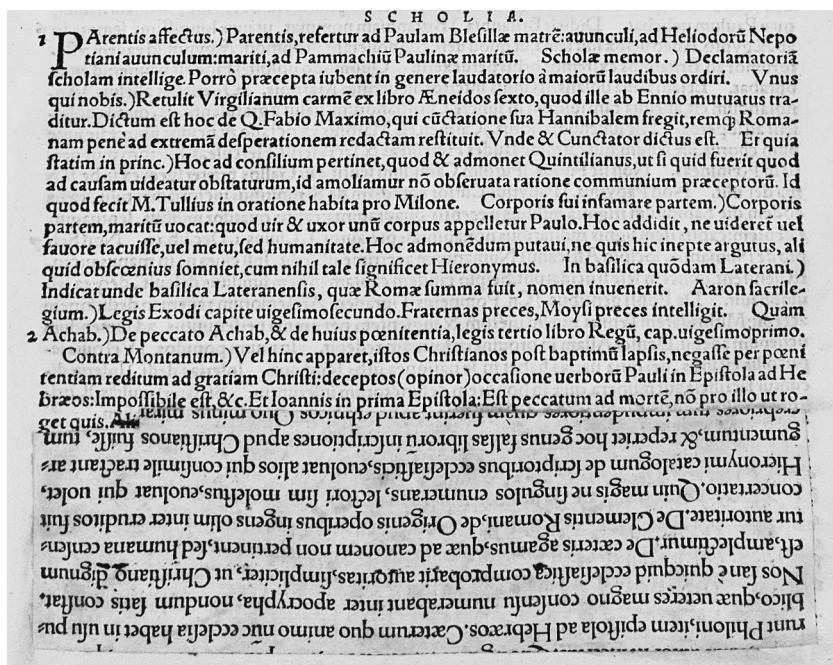 SCHOLIA.
1 PArentis affectus.) Parentis, refertur ad Paulam Bleſillæ matrē: auunculi, ad Heliodorū Nepo
tiani auunculum: mariti, ad Pammachiū Paulinæ maritū. Scholæ memor.) Declamatoriā
ſcholam intellige. Porrò præcepta iubent in genere laudatorio à maiorū laudibus ordiri. Vnus
qui nobis.) Retulit Virgilianum carmē ex libro Æneidos ſexto, quod ille ab Ennio mutuatus tra-
ditur. Dictum eſt hoc de Q. Fabio Maximo, qui cūctatione ſua Hannibalem fregit, remq; Roma-
nam penè ad extremā deſperationem redactam reſtituit. Vnde & Cunctator dictus eſt. Et quia
ſtatim in princ.) Hoc ad conſilium pertinet, quod & admonet Quintilianus, ut ſi quid fuerit quod
ad cauſam uideatur obſtaturum, id amoliamur nō obſeruata ratione communium præceptorū. Id
quod fecit M. Tullius in oratione habita pro Milone. Corporis ſui infamare partem.) Corporis
partem, maritū uocat: quod uir & uxor unū corpus appelletur Paulo. Hoc addidit, ne uideret uel
fauore tacuiſſe, uel metu, ſed humanitate. Hoc admonēdum putaui, ne quis hic inepte argutus, ali
quid obſcœnius ſomniet, cum nihil tale ſignificet Hieronymus. In baſilica quōdam Laterani.)
Indicat unde baſilica Lateranenſis, quæ Romæ ſumma fuit, nomen inuenerit. Aaron ſacrile-
gium.) Legis Exodi capite uigeſimoſecundo. Fraternas preces, Moyſi preces intelligit. Quàm
2 Achab.) De peccato Achab, & de huius pœnitentia, legis tertio libro Regū, cap. uigeſimoprimo.
Contra Montanum.) Vel hinc apparet, iſtos Chriſtianos poſt baptimū lapſis, negaſſe per pœni
tentiam reditum ad gratiam Chriſti: deceptos (opinor) occaſione uerborū Pauli in Epiſtola ad He
bræos: Impoſſibile eſt, &c. Et Ioannis in prima Epiſtola: Eſt peccatum ad mortē, nō pro illo ut ro-
get quis.
runt Philoni, item epiſtola ad Hebræos. Cæterum quo animo nūc eccleſia habet in uſu pu=
blico, quæ ueteres magno conſenſu numerabant inter apocrypha, nondum ſatis conſtat.
Nos ſanè quicquid eccleſiaſtica comprobauit autoritas, ſimpliciter, ut Chriſtiano dignum
eſt, amplectimur. De cæteris agamus, quæ ad canonem non pertinent, ſed humana cenſen=
tur autoritate. De Clementis Romani, de Origenis operibus ingens olim inter eruditos fuit
concertatio. Quin magis ne ſingulos enumerans, lectori ſim moleſtus, euoluat qui uolet,
Hieronymi catalogum de ſcriptoribus eccleſiaſticis, euoluat alios qui conſimile tractant ar=
gumentum, & reperiet hoc genus falſas librorū inſcriptiones apud Chriſtianos fuiſſe, tum
crebriores tum impudentiores quàm fuerint apud ethnicos Quo minus